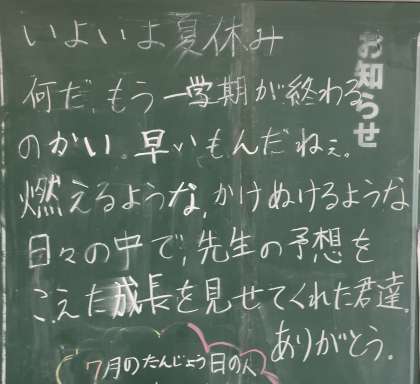 いよいよ夏休み
お知らせ
何だ、もう一学期が終わる
のかい。早いもんだねぇ。
燃えるような、かけぬけるような
日々の中で、先生の予想を
こえた成長を見せてくれた君達。
ありがとう。
7月のたんじょう日の人